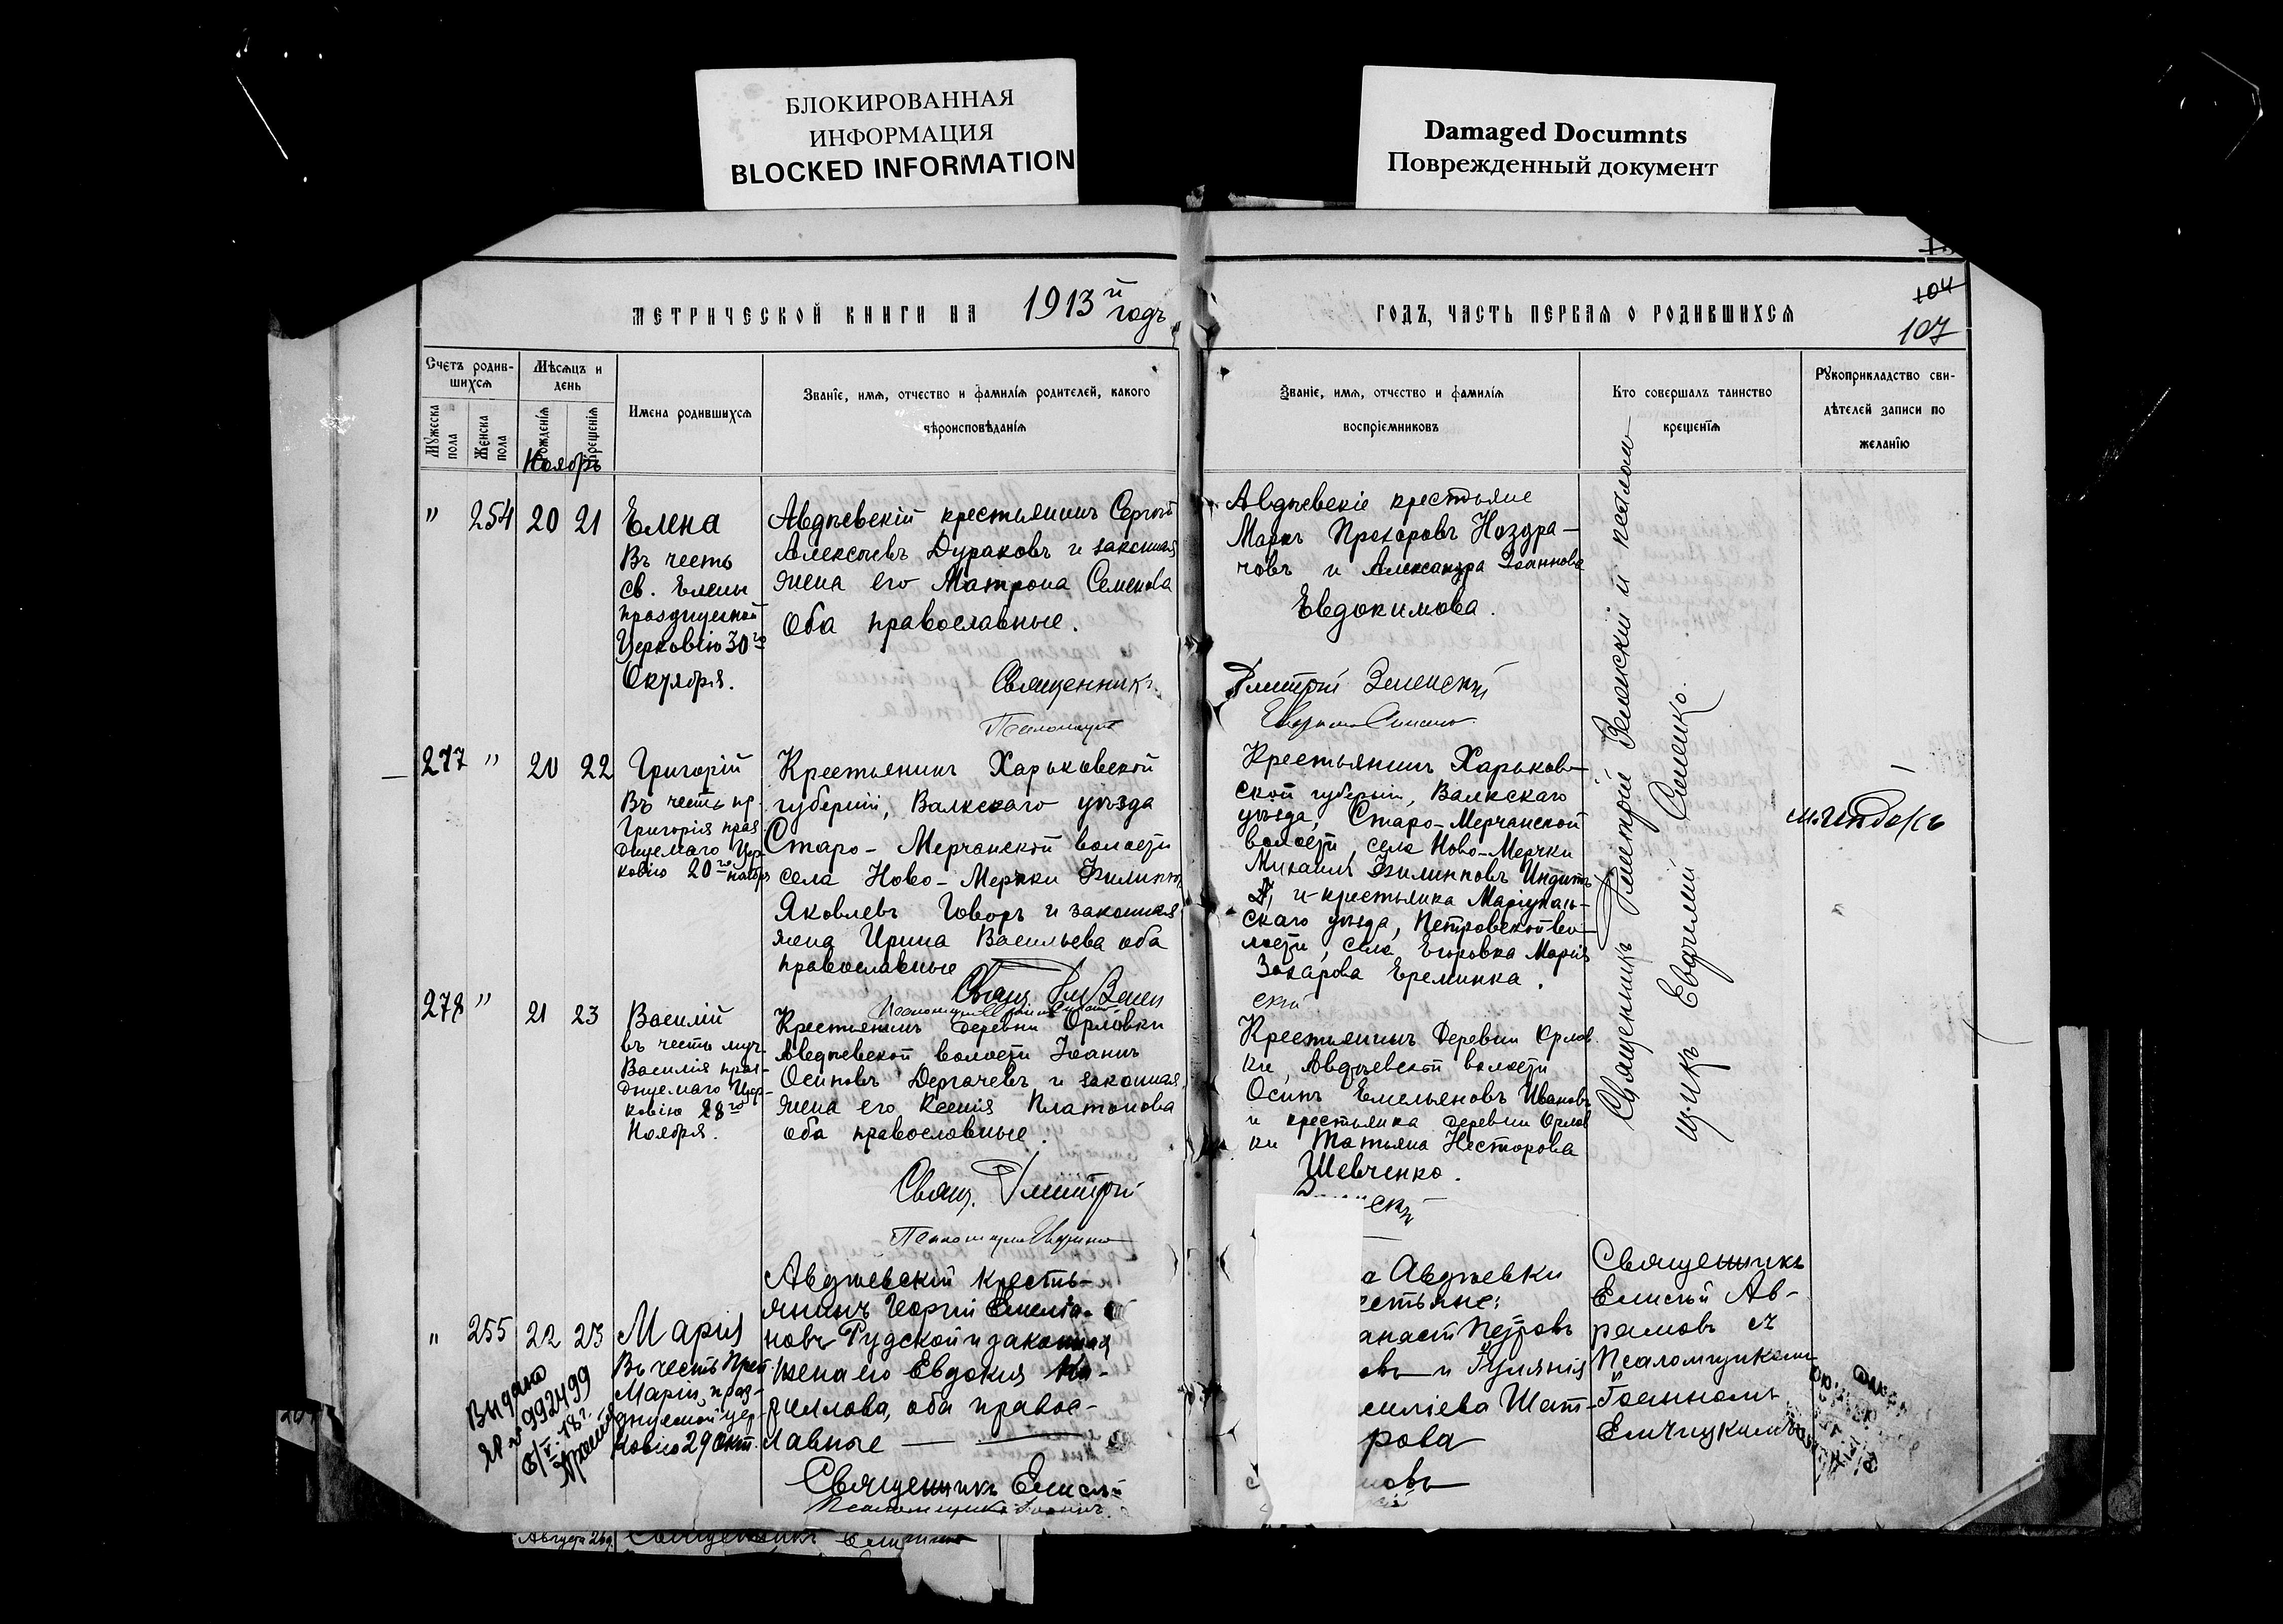 БЛОКИРОВАННАЯ
ИНФОРМАЦИЯ
BLOCKED INFORMATION
Damaged Documnts
Поврежденный документ
МЕТРИЧЕСКОЙ КНИГИ НА 1913й годъ
ГОДЪ, ЧАСТЬ ПЕРВАЯ О РОДИВШИХСЯ
104
107
Счетъ родив-
шихся
Мужеска пола
Женска пола
Мѣсяцъ и
день
рожденія
крещенія
Имена родившихся
Званіе, имя, отчество и фамилія родителей, какого
вѣроисповѣданія
Званіе, имя, отчество и фамилія
воспріємниковъ
Кто совершалъ таинство
крещенія
Рукоприкладство сви-
дѣтелей записи по
желанію
Ноябрь
" 254 20 21
Елена
Въ честь
св. Елены
празднуемой
Церковію 30го
Октября.
Авдѣевскій крестьянинъ Сергѣй
Алексѣевъ Дураковъ и законная
жена его Матрона Семенова
Оба православные.
Священникъ
Псаломщикъ
Авдѣевскіе крестьяне
Маркъ Прохоровъ Ноздра-
човъ и Александра Іоаннова
Евдокимова.
Дмитрій Зеленскій
277 " 20 22
Григорій
Въ честь пр.
Григорія праз
днуемаго Цер-
ковію 20го
Крестьянинъ Харьковской
губерніи, Валкскаго уѣзда
Старо-Мерчанской волости
села Ново-Мерчки Филиппъ
Яковлевъ Говоръ и законная
жена Ирина Васильева оба
православные
Свящ. Дм. Зелен
скій
Крестьянинъ Харьков-
ской губерніи, Валкскаго
уѣзда, Старо-Мерчанской
волости, села Ново-Мерчки
Михаилъ Филипповъ
и крестьянка Маріуполь-
скаго уѣзда, Петровской во-
лости, села Егоровка Марія
Захарова Еремина.
278 " 21 23
Василій
въ честь муч.
Василія праз-
днуемаго Цер-
ковію 28го
Ноября.
Крестьянинъ деревни Орловки
Авдѣевской волости Іоаннъ
Осиповъ Дергачевъ и законная
жена его Ксенія Платонова
оба православные.
Свящ. Дмитрій
Псаломщикъ
Крестьянинъ Деревни Орлов
ки, Авдѣевской волости
Осипъ Емельяновъ Ивановъ
и крестьянка деревни Орлов
ки Татьяна Несторова
Шевченко.
Священникъ Дмитрій Зеленскій и псалом-
щикъ Евфимій
" 255 22 23
Марія
Въ честь Преп.
Маріи, праз-
днуемой цер-
ковію 29 Окт.
Авдѣевскій кресть-
янинъ Георгій Емелья-
новъ Рудской и законная
жена его Евдокія
оба правос-
лавные
Священникъ Елисѣй
Псаломщикъ Іоаннъ
Авдѣевки
естьяне:
анасій Петровъ
овъ и Іуліанія
силіева Шат-
рова
Священникъ
Елисѣй Ав-
рамовъ съ
Псаломщикомъ
Іоанномъ
Выдано
992499
Священникъ